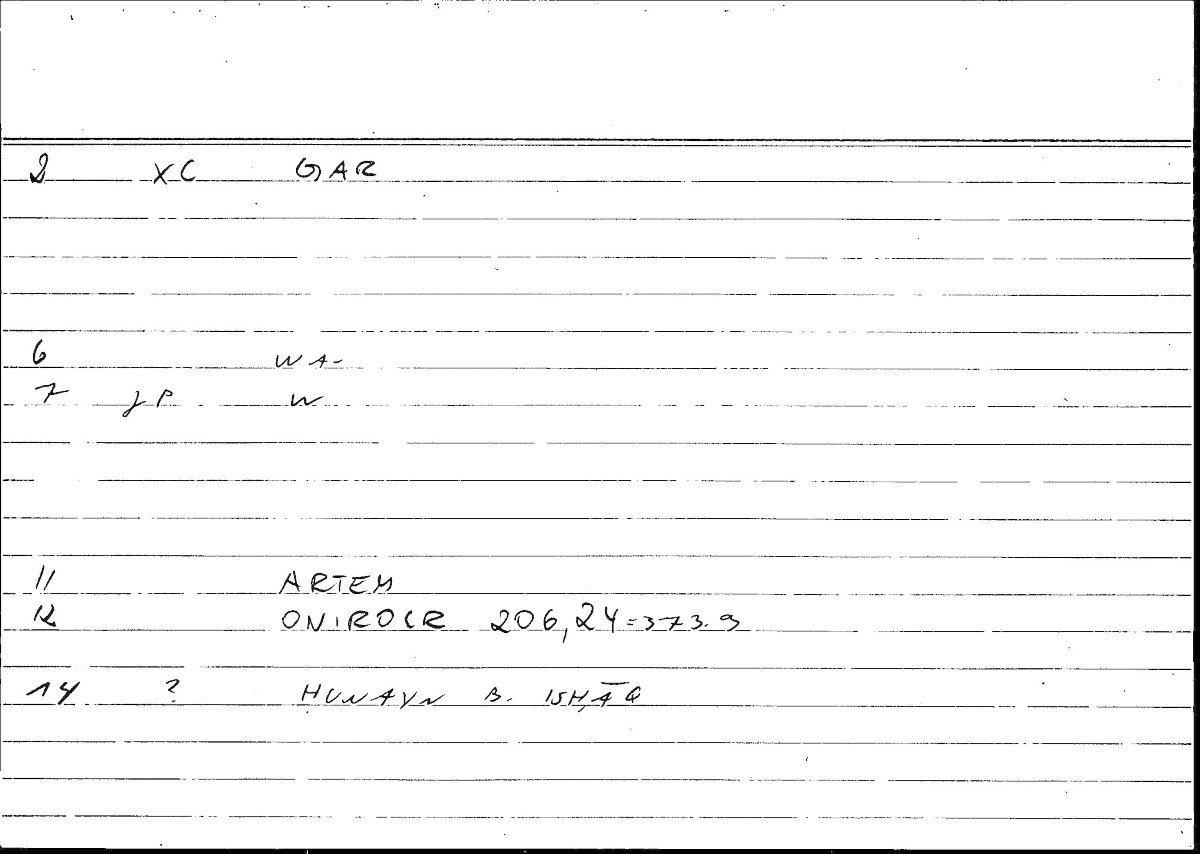 2 XC GAR
6 WA-
7 JP W
11 ARTEM
12 ONIROCR 206,24=373.9
14 ? ḤUNAYN B. ISḤĀQ